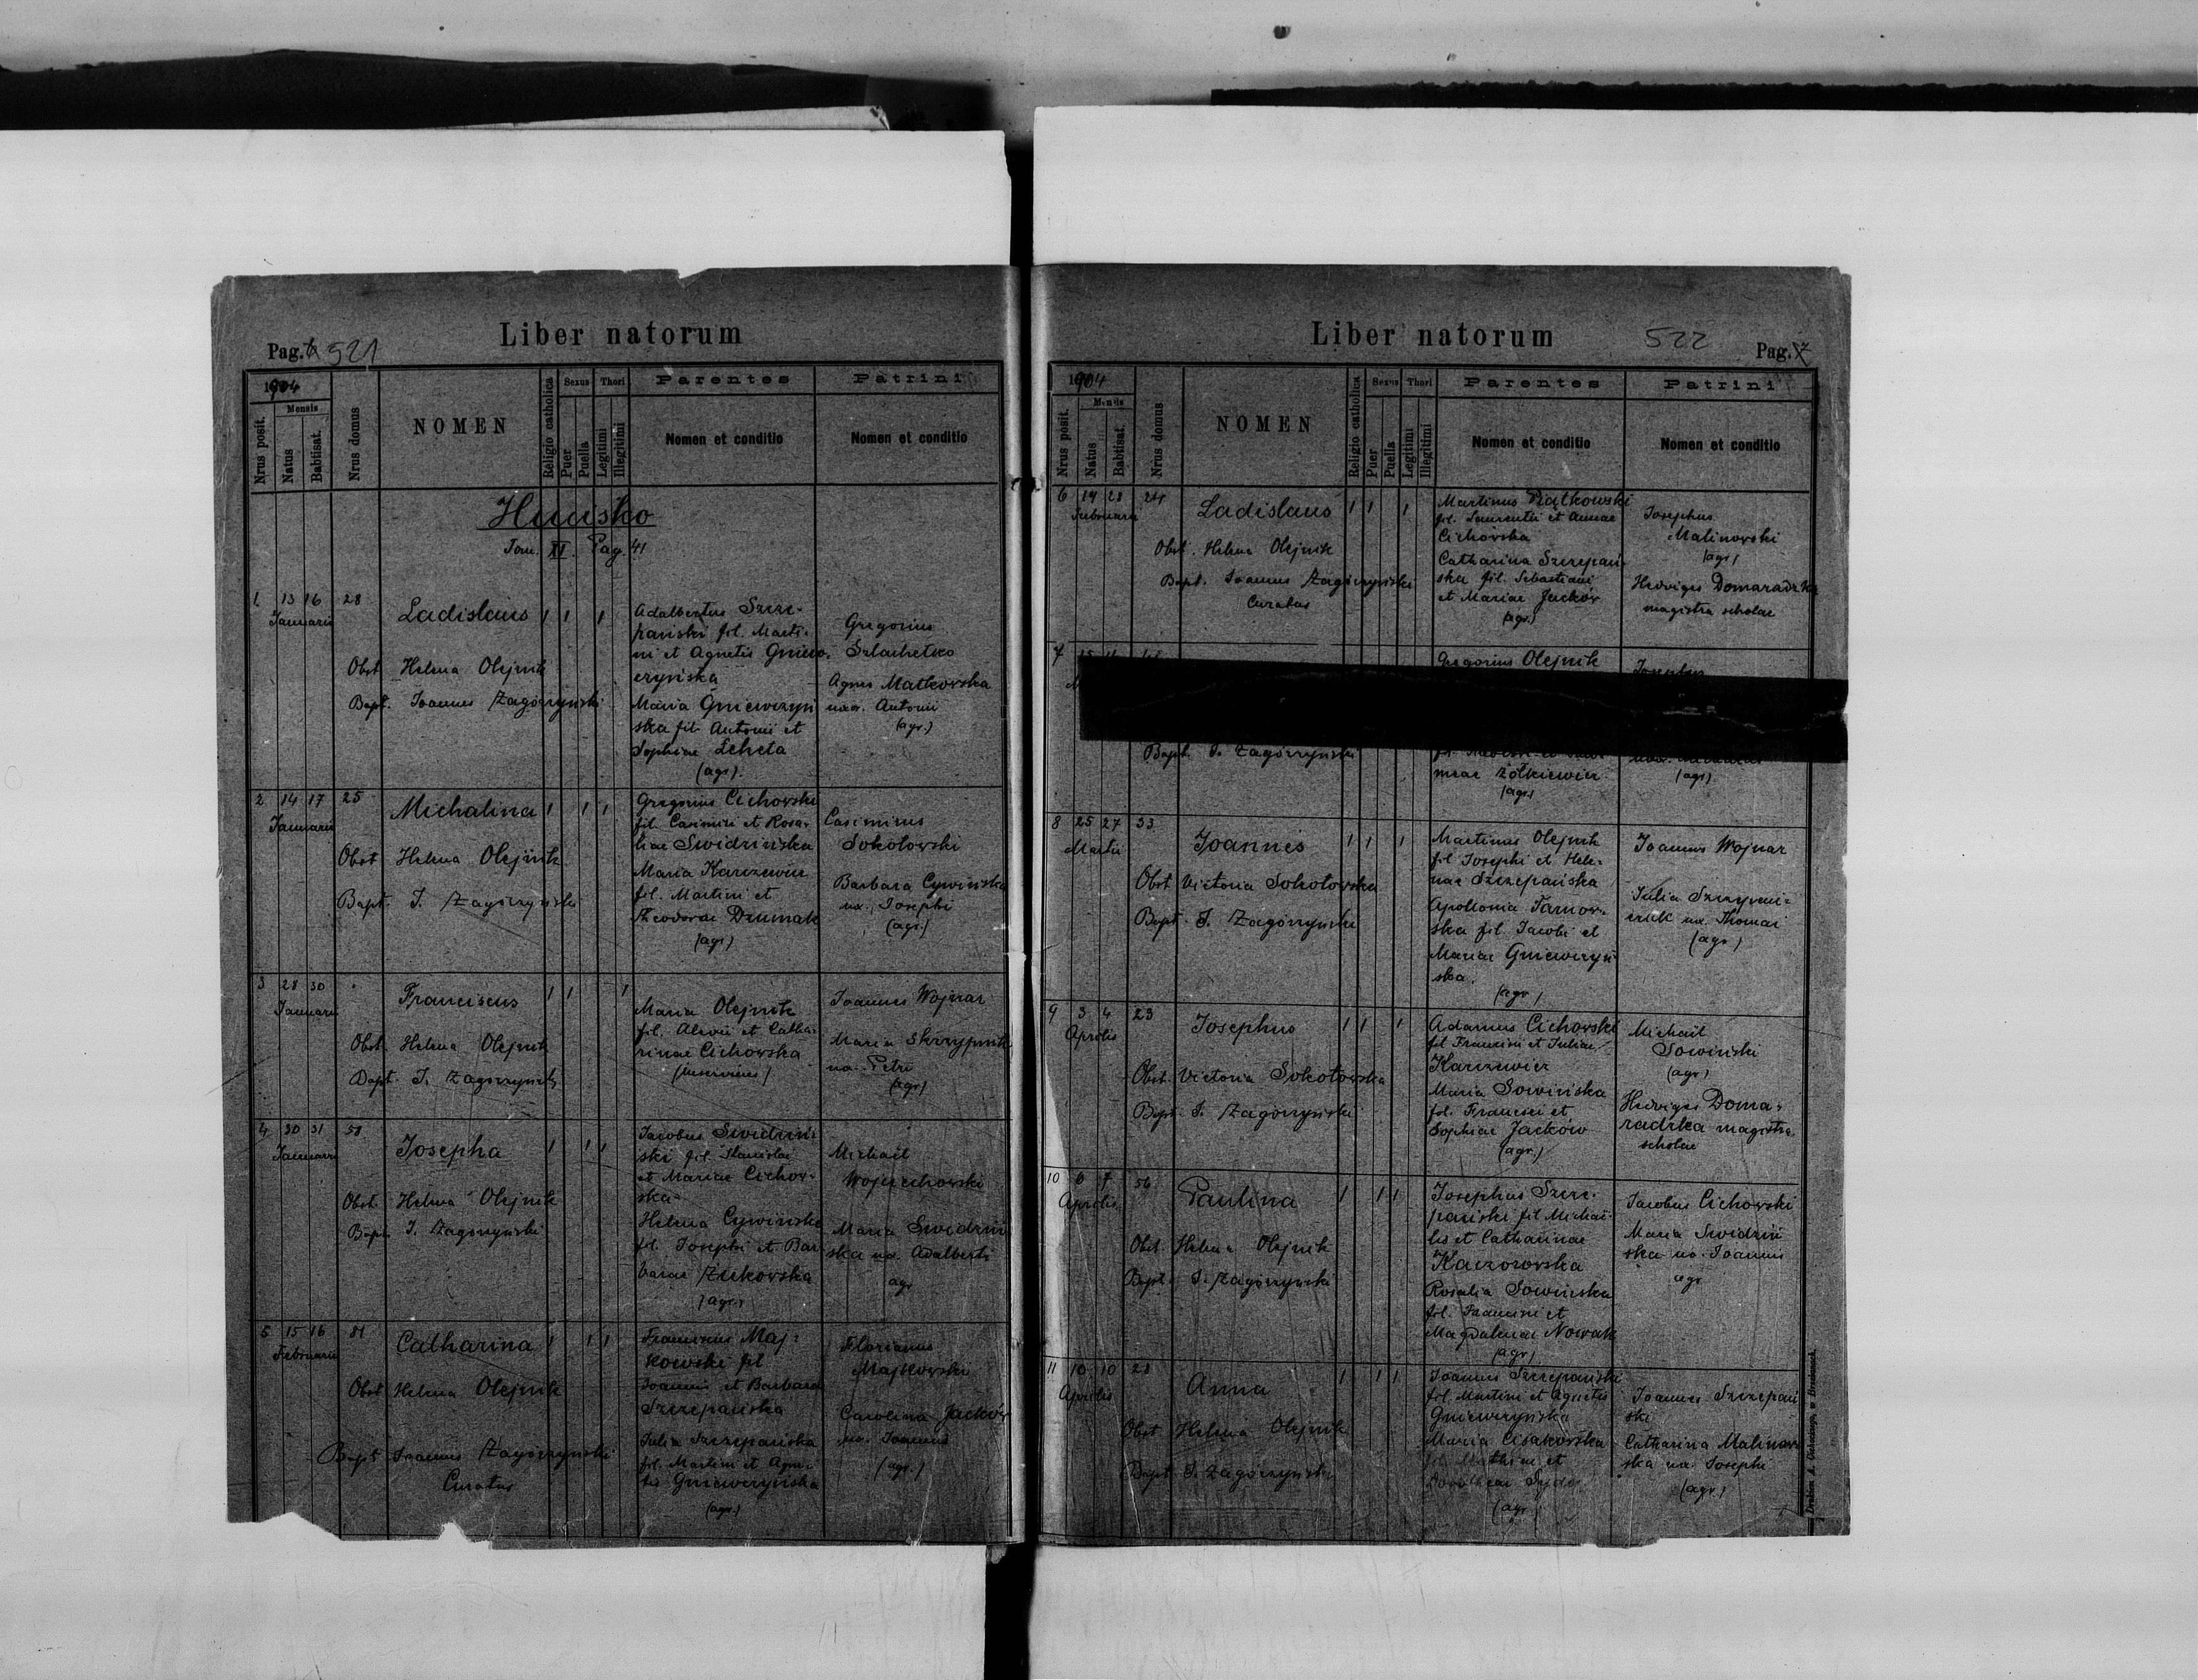 Liber natorum
Pag. 521
1904
Nrus posit.
Mensis
Natus
Babtisat.
Nrus domus
NOMEN
Religio catholica
Sexus
Puer
Puella
Thori
Legitimi
Illegitimi
Parentes
Nomen et conditio
Patrini
Nomen et conditio
Hucisko
Tom. XI. Pag. 41
1. 13 16 28
Januarii
Ladislaus 1 1 1
Obst Helena Olejnik
Bapt. Joannes Zagórzyński
Adalbertus Szcze-
pański fil. Marti-
ni et Agnetis Gniew-
czyńska
Maria Gniewczyń
ska fil. Antonii et
Sophiae Lcheta
(agr.)
Gregorius
Szlachetko
Agnes Matkowska
uxor. Antonii
(agr.)
2 14 17 25
Januarii
Michalina 1 1 1
Obst Helena Olejnik
Bapt. J. Zagórzyński
Gregorius Cichowski
fil. Casimiri et Rosa-
liae Swidzińska
Maria Karczewicz
fil. Martini et
Teodorae Drumak
(agr.)
Casimirus
Sokołowski
Barbara Cywińska
ux. Josephi
(agr.)
3 28 30
Januarii
Franciscus 1 1 1
Obst. Helena Olejnik
Bapt. J. Zagórzyński
Maria Olejnik
fil. Alexii et Catha-
rinae Cichowska
Joannes Wojnar
Maria Skrzypnik
ux. Petri
(agr)
4 30 31 58
Januarii
Josepha 1 1 1
Obst. Helena Olejnik
Bapt. J. Zagórzyński
Jacobus Swidziń-
ski fil. Stanislai
et Mariae Cichow-
ska
Helena Cywińska
fil. Josephi et Bar
barae Żukowska
(agr.)
Michael
Wojciechowski
Maria Swidziń
ska ux. Adalberti
agr
5 15 16 81
Februarii
Catharina 1 1 1
Obst Helena Olejnik
Bapt Joannes Zagórzyński
Curatus
Franciscus Maj-
kowski fil
Joannis et Barbara
Szczepańska
Julia Szczepańska
fil. Martini et Agne-
tis Gniewczyńska
(agr.)
Florianus
Majkowski
Carolina Jacków
ux. Joannis
(agr.)
Liber natorum
522
Pag. 7
1904
Nrus posit.
Mensis
Natus
Babtisat.
Nrus domus
NOMEN
Religio catholica
Sexus
Puer
Puella
Thori
Legitimi
Illegitimi
Parentes
Nomen et conditio
Patrini
Nomen et conditio
6 14 28 24
Februarii
Ladislaus 1 1 1
Obst. Helena Olejnik
Bapt. Joannes Zagórzyński
Curatus
Martinus Piątkowski
fil. Laurentii et Annae
Cichowska
Catharina Szczepań-
ska fil. Sebastiani
et Mariae Jacków
(agr.)
Josephus
Malinowski
(agr)
Hedviges Domaradzka
magistra scholae
7
Gregorius Olejnik
Josephus
Bapt. J. Zagórzyński
mrae Żółkiewicz
(agr.)
(agr)
8 25 27 33
Martii
Joannes 1 1 1
Obst Victoria Sokołowska
Bapt. J. Zagórzyński
Martinus Olejnik
fil Josephi et Hele-
nae Szczepańska
Apollonia Tarnow-
ska fil Jacobi et
Mariae Gniewczyń
ska.
(agr.)
Joannes Wojnar
ux. Thomai
(agr)
9 3 4 23
Aprilis
Josephus 1 1 1
Obst. Victoria Sokołowska
Bapt. J. Zagórzyński
Adamus Cichowski
fil Francisci et Juliae
Karczewicz
Maria Sowińska
fil. Francisci et
Sophiae Jacków
(agr.)
Michael
Sowiński
(agr)
Hedviges Doma-
radzka magistra
scholae
10 6 7 56
Aprilis
Paulina 1 1 1
Obst. Helena Olejnik
Bapt. J. Zagórzyński
Josephus Szcze-
pański fil Michae-
lis et Catharinae
Kaczorowska
Rosalia Sowińska
fil. Francisci et
Magdalenae Nowak
(agr)
Jacobus Cichowski
Maria Swidziń
ska ux. Joannis
agr
11 10 10 28
Aprilis
Anna 1 1 1
Obst Helena Olejnik
Bapt J. Zagórzyński
Joannes Szczepański
fil. Martini et Agnetis
Gniewczyńska
Maria Cisakowska
fil. Mathiae et
(agr.)
Joannes Szczepań
ski
Catharina Malinow
ska ux. Josephi
(agr)